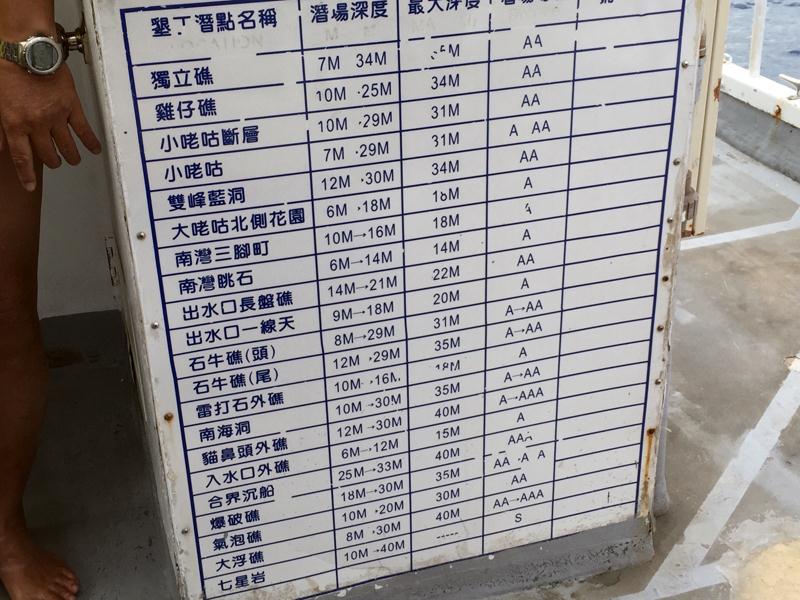 墾丁潛點名稱 潛場深度 最大深度
獨立礁 7M 34M AA
雞仔礁 10M 25M 34M AA
小咾咕斷層 10M 29M 31M AA
小咾咕 7M 29M 31M A AA
雙峰藍洞 12M 30M 34M AA
大咾咕北側花園 6M 18M 18M A
南灣三腳町 10M→16M 18M
南灣眺石 6M→14M 14M A
出水口長盤礁 14M→21M 22M AA
出水口一線天 9M→18M 20M A
石牛礁(頭) 8M→29M 31M A→AA
石牛礁(尾) 12M 29M 35M A→AA
雷打石外礁 10M 16M 18M A
南海洞 10M→30M 35M A→AA
貓鼻頭外礁 12M→30M 40M A→AAA
入水口外礁 6M→12M 15M A
合界沉船 25M→33M 40M
爆破礁 18M→30M 35M AA A A
氣泡礁 10M→20M 30M AA
大浮礁 8M 30M 40M AA→AAA
七星岩 10M→40M ----- S